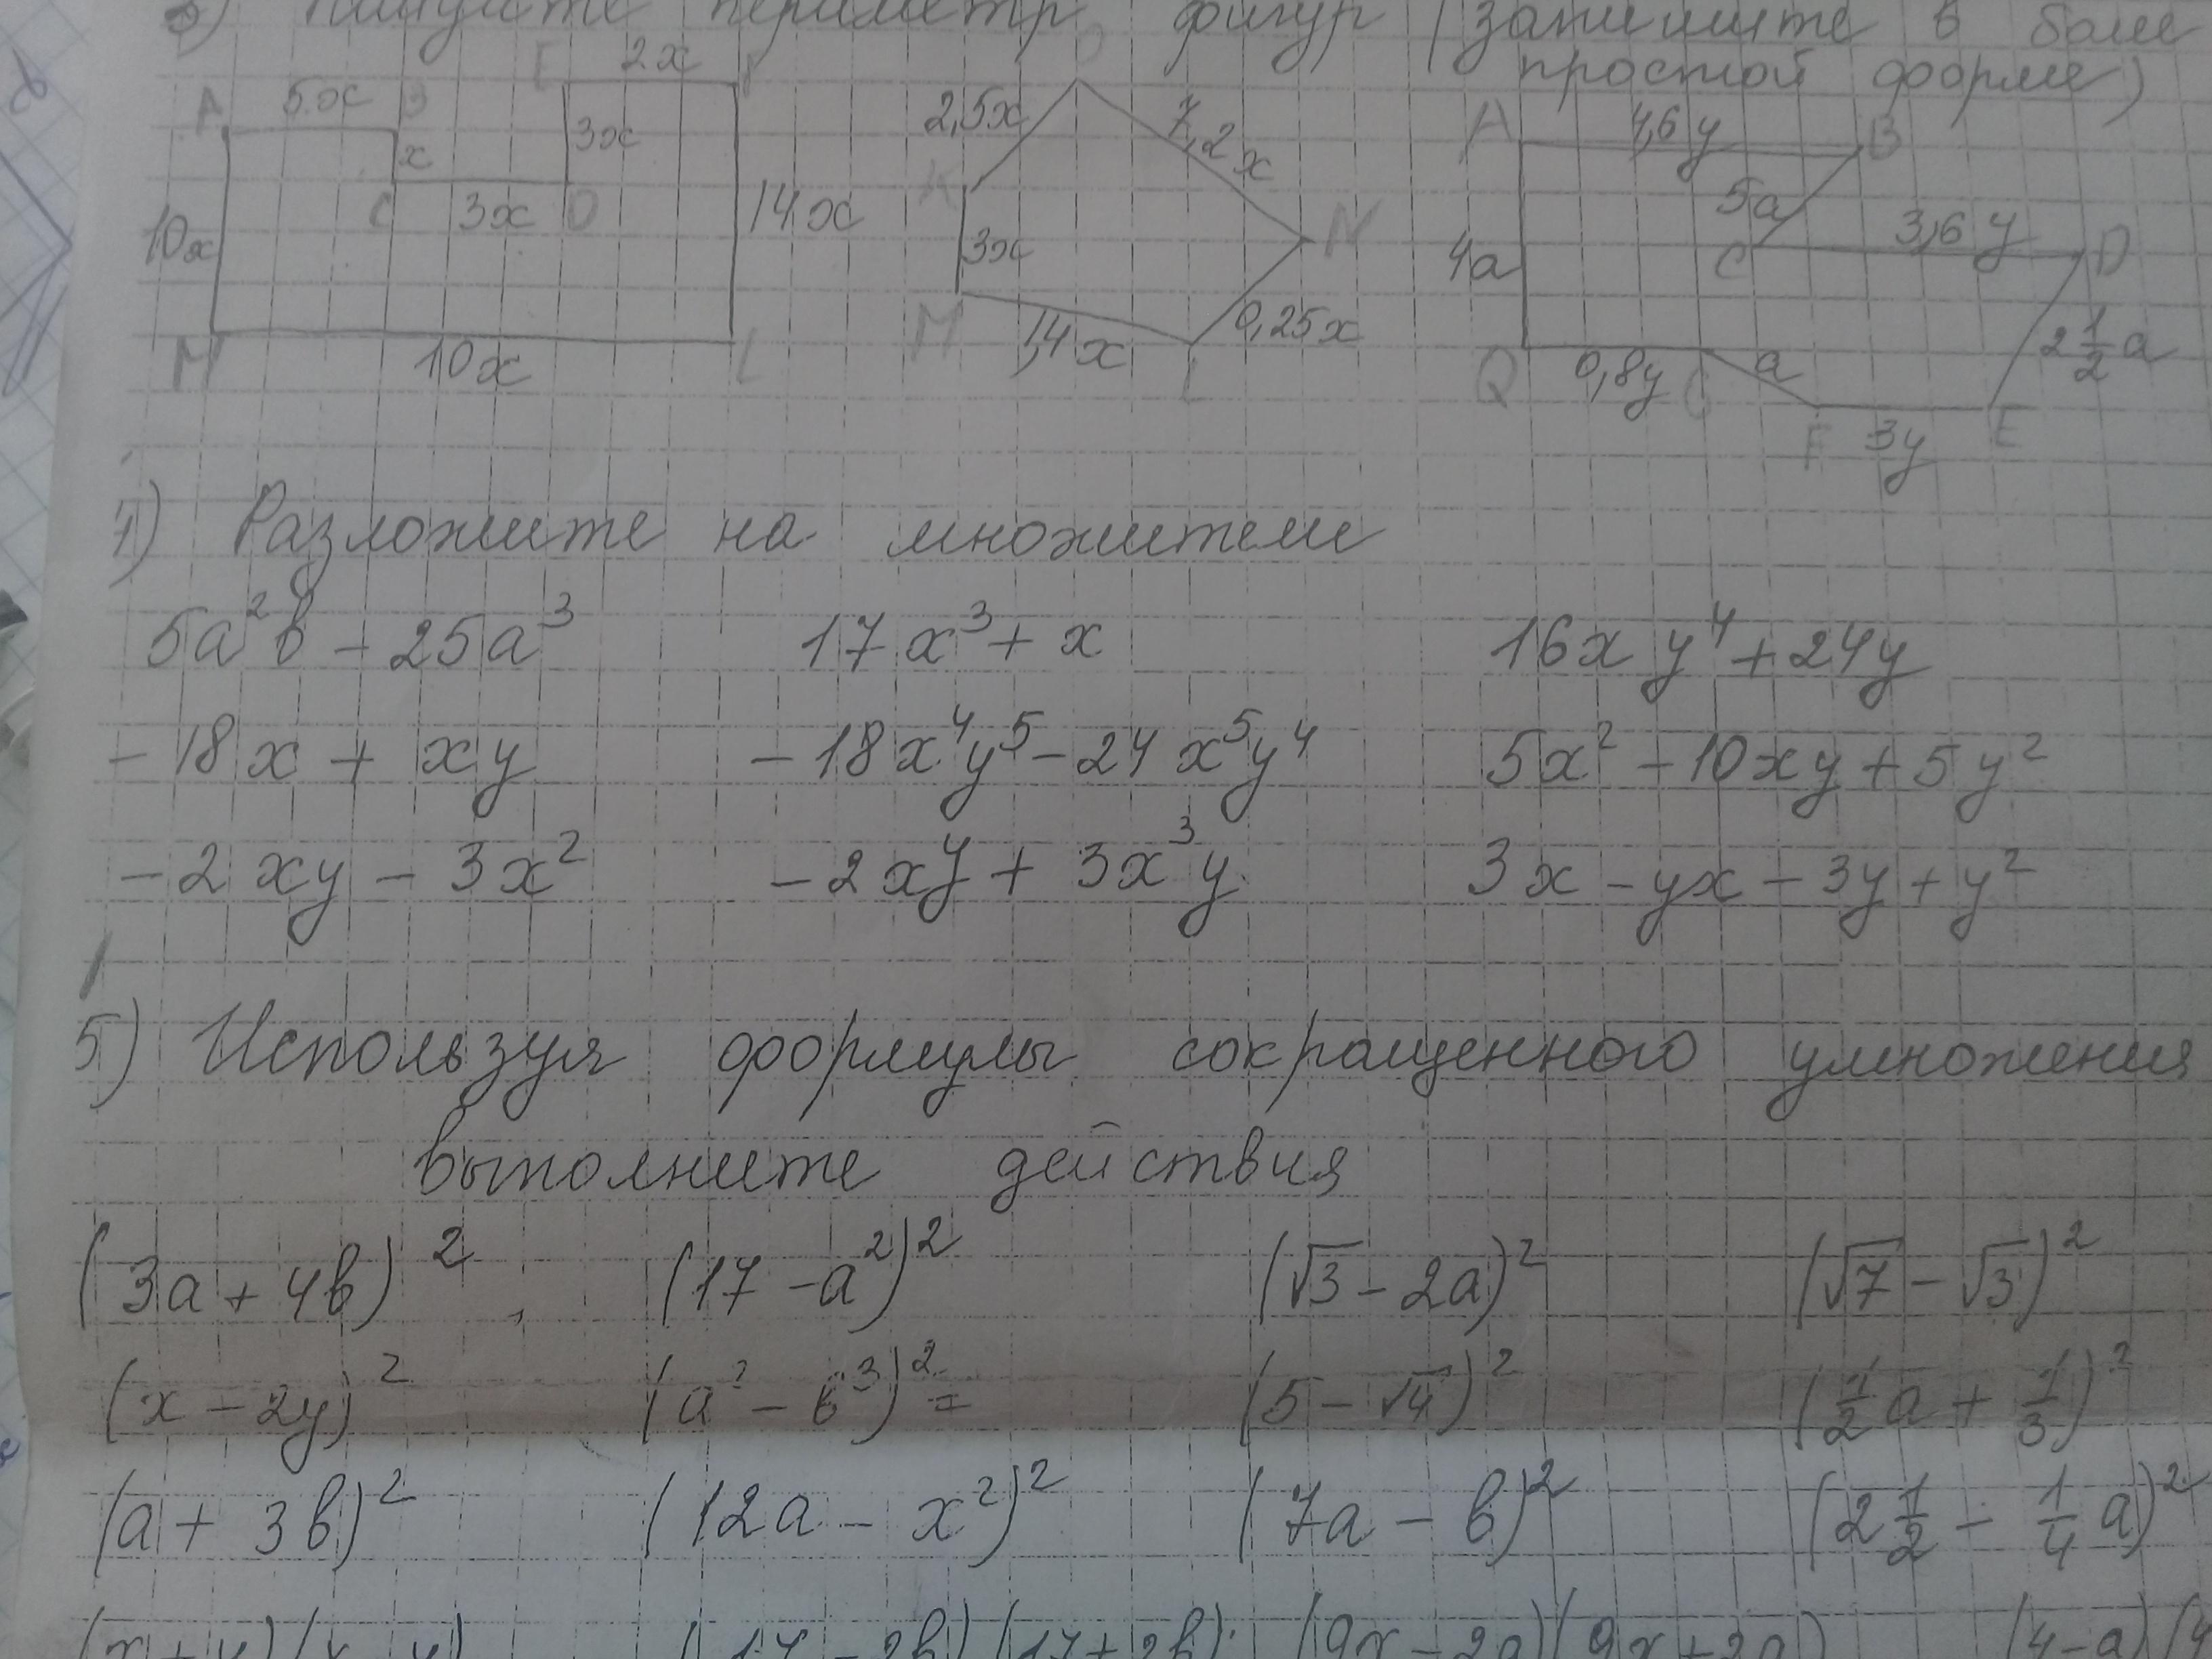 3) Найдите периметр фигур (запишите в более
простой форме)
A 5x B x C 3x D 3x E 2x 14x L 10x M 10x
2,5x 7,2x N 0,25x L 1,4x M 3x K
A 4,6y B 5a C 3,6y D 2 1/2 a E 3y F a 0,8y Q 4a
4) Разложите на множители
5a²b - 25a³ 17x³ + x 16xy⁴ + 24y
- 18x + xy - 18x⁴y⁵ - 24x⁵y⁴ 5x² - 10xy + 5y²
- 2xy - 3x² - 2xy + 3x³y 3x - yx - 3y + y²
5) Используя формулы сокращенного умножения
выполните действия
(3a + 4b)² (17 - a²)² (√3 - 2a)² (√7 - √3)²
(x - 2y)² (a² - b³)² = (5 - √4)² (1/2 a + 1/3)²
(a + 3b)² (12a - x²)² (7a - b)² (2 1/2 - 1/4 a)²
(17 - 2b)(17 + 2b) (9x - 2a)(9x + 2a) (4 - a)